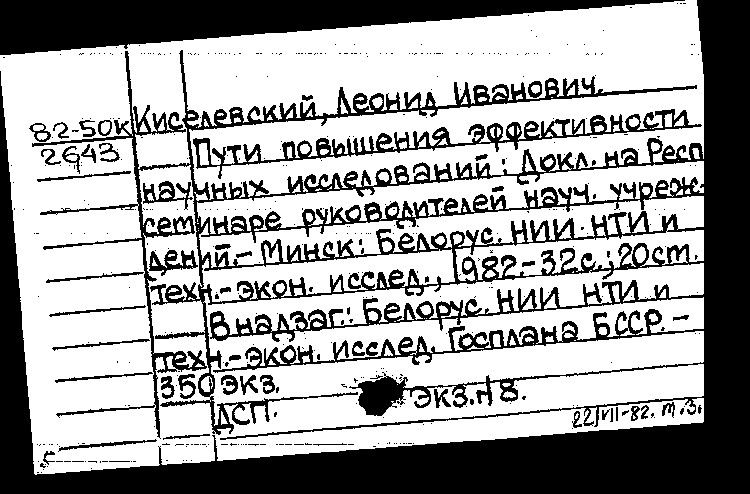 82-50к Киселевский, Леонид Иванович.
2643 Пути повышения эффективности
научных исследований: Докл. на Респ
сетинаре руководителей науч. учреж-
дений.- Минск: Белорус. НИИ НТИ и
техн.-экон. исслед., 1982.-32с.; 20см.
В надзаг.: Белорус. НИИ НТИ и
техн.-экон. исслед. Госплана БССР.-
350 экз.
ДСП. Экз.№8.
22/VII-82. т.з.
5